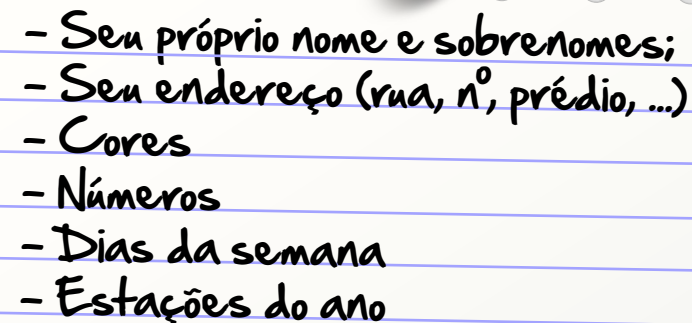 - Seu próprio nome e sobrenomes;
- Seu endereço (rua, nº, prédio, ...)
- Cores
- Números
- Dias da semana
- Estações do ano